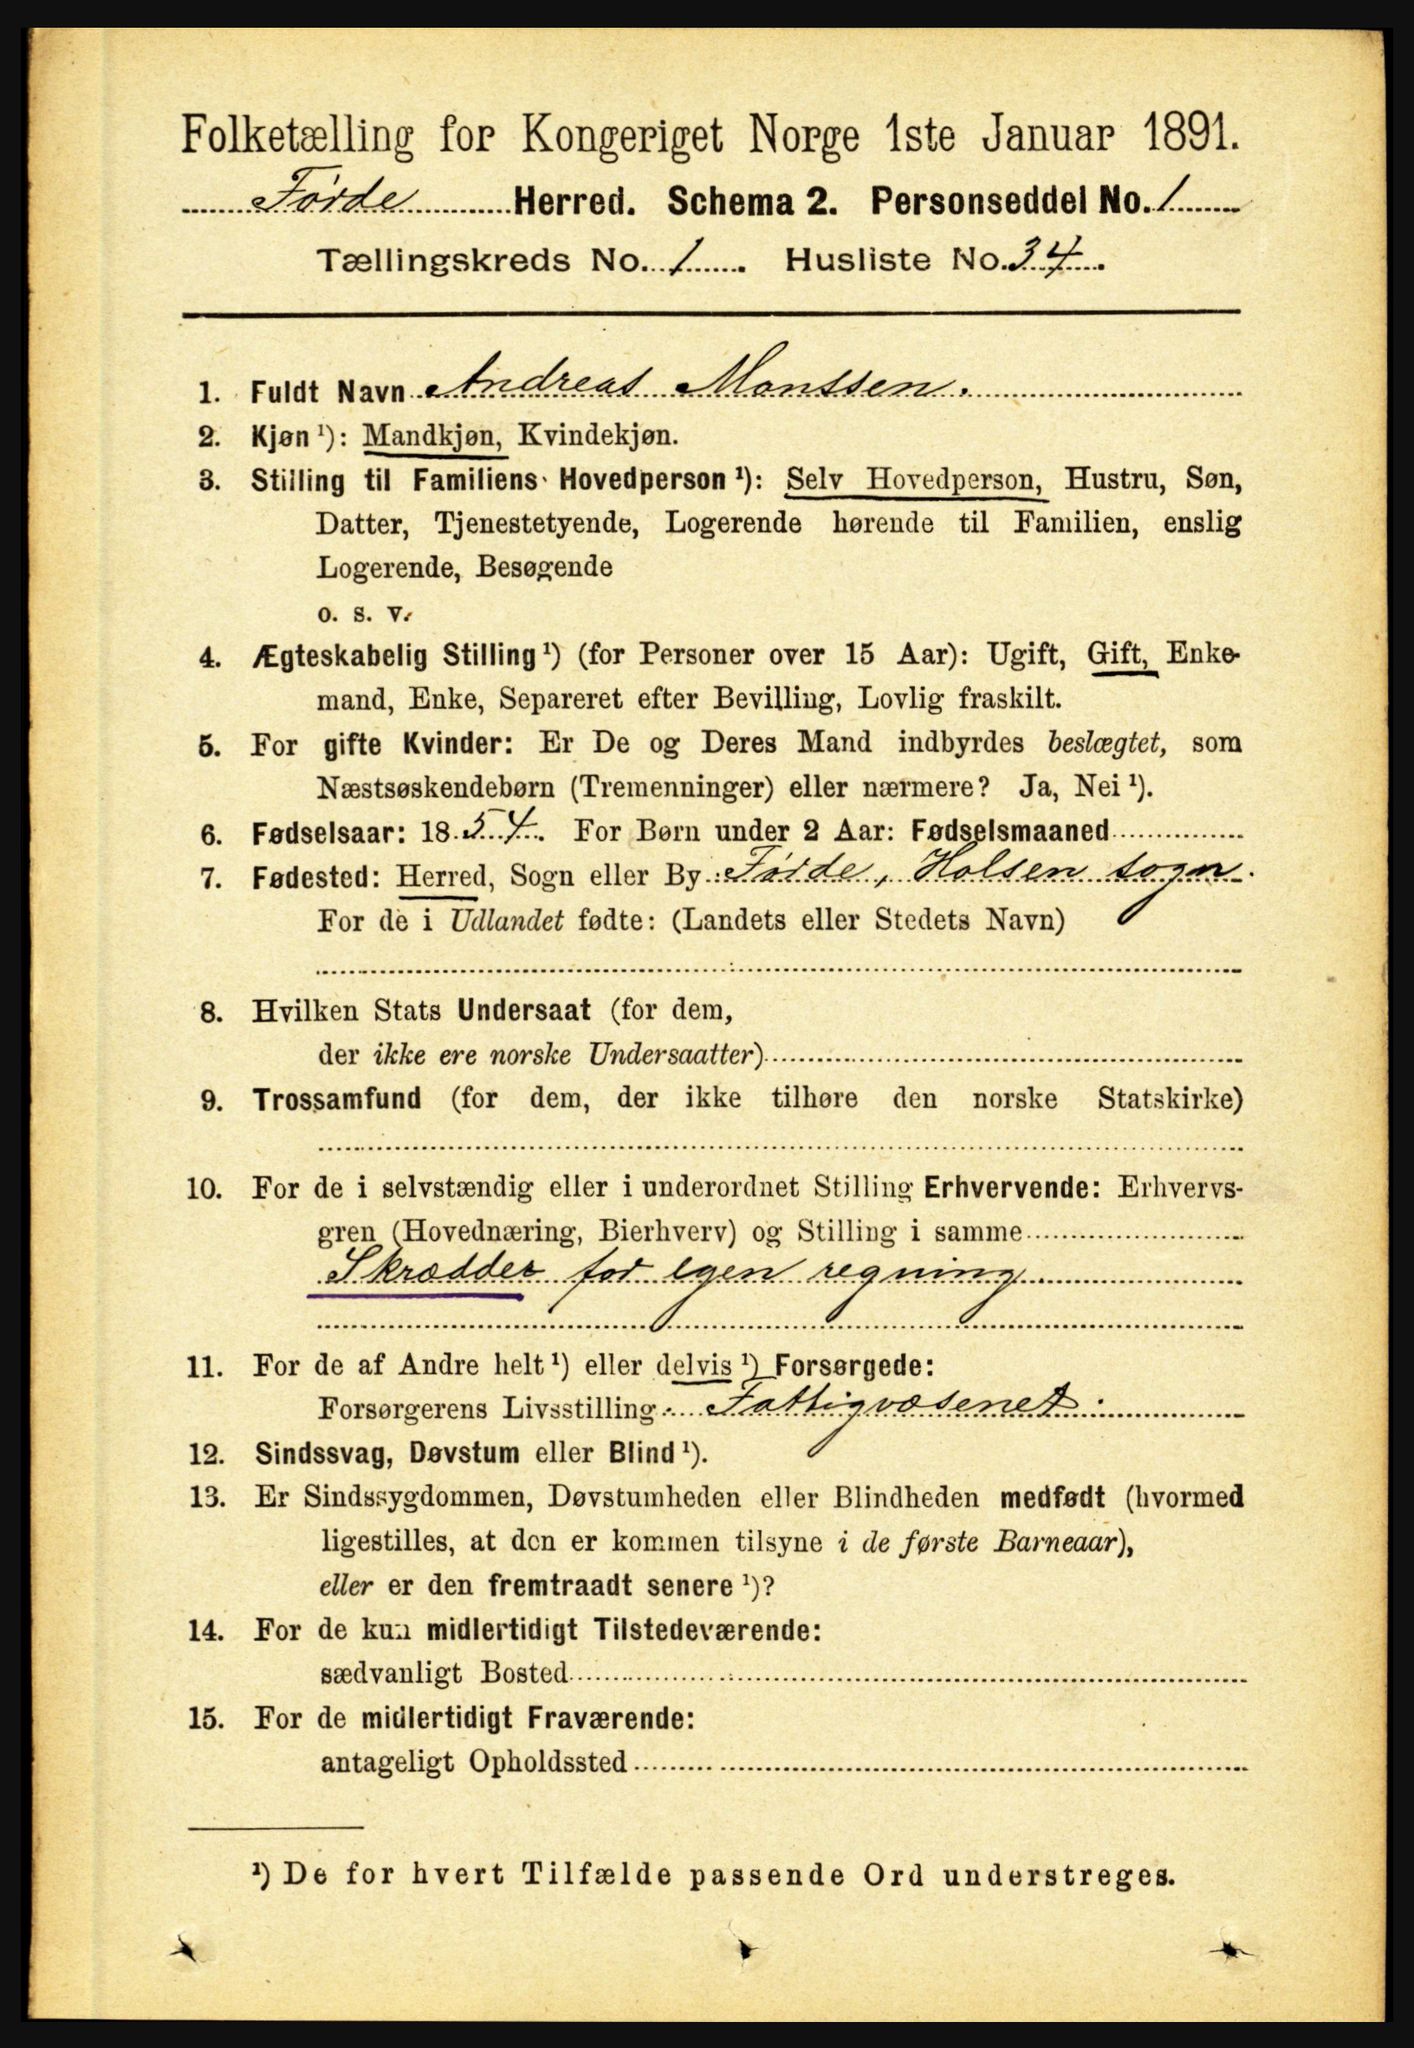 Folketælling for Kongeriget Norge 1ste Januar 1891.
Førde Herred. Schema 2. Personseddel No. 1
Tællingskreds No. 1. Husliste No. 34.
1. Fuldt Navn Andreas Monssen.
2. Kjøn ¹): Mandkjøn, Kvindekjøn.
3. Stilling til Familiens Hovedperson ¹): Selv Hovedperson, Hustru, Søn,
Datter, Tjenestetyende, Logerende hørende til Familien, enslig
Logerende, Besøgende
o. s. v.
4. Ægteskabelig Stilling ¹) (for Personer over 15 Aar): Ugift, Gift, Enke-
mand, Enke, Separeret efter Bevilling, Lovlig fraskilt.
5. For gifte Kvinder: Er De og Deres Mand indbyrdes beslægtet, som
Næstsøskendebørn (Tremenninger) eller nærmere? Ja, Nei ¹).
6. Fødselsaar: 1854. For Børn under 2 Aar: Fødselsmaaned
7. Fødested: Herred, Sogn eller By: Førde, Holsen sogn.
For de i Udlandet fødte: (Landets eller Stedets Navn)
8. Hvilken Stats Undersaat (for dem,
der ikke ere norske Undersaatter)
9. Trossamfund (for dem, der ikke tilhøre den norske Statskirke)
10. For de i selvstændig eller i underordnet Stilling Erhvervende: Erhvervs-
gren (Hovednæring, Bierhverv) og Stilling i samme
Skrædder for egen regning
11. For de af Andre helt ¹) eller delvis ¹) Forsørgede:
Forsørgerens Livsstilling: Fattigvæsenet.
12. Sindssvag, Døvstum eller Blind ¹).
13. Er Sindssygdommen, Døvstumheden eller Blindheden medfødt (hvormed
ligestilles, at den er kommen tilsyne i de første Barneaar),
eller er den fremtraadt senere ¹)?
14. For de kun midlertidigt Tilstedeværende:
sædvanligt Bosted
15. For de midlertidigt Fraværende:
antageligt Opholdssted
¹) De for hvert Tilfælde passende Ord understreges.